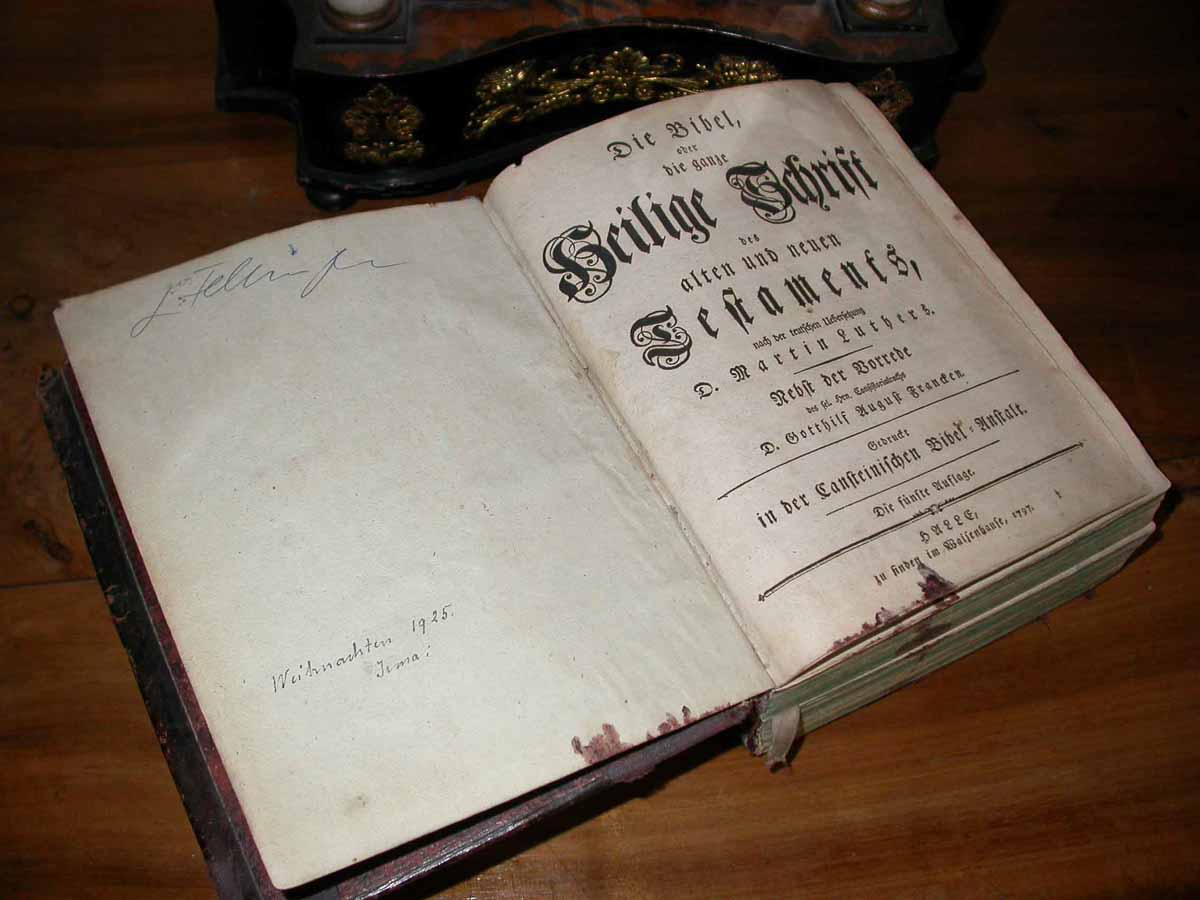 Weihnachten 1925.
Irma:
Die Bibel,
oder
die ganze
Heilige Schrift
des
alten und neuen
Testaments,
nach der teutschen Uebersetzung
D. Martin Luthers.
Nebst der Vorrede
des sel. Hrn. Consistorialraths
D. Gotthilf August Francken.
Gedruckt
in der Cansteinischen Bibel-Anstalt.
Die fünfte Auflage.
HALLE,
zu finden im Waisenhause, 1797.